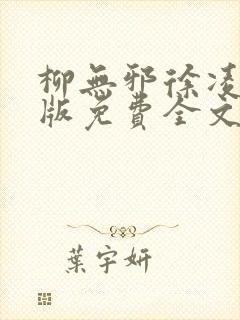 柳無邪徐凌
版免費全文
葉宇妍